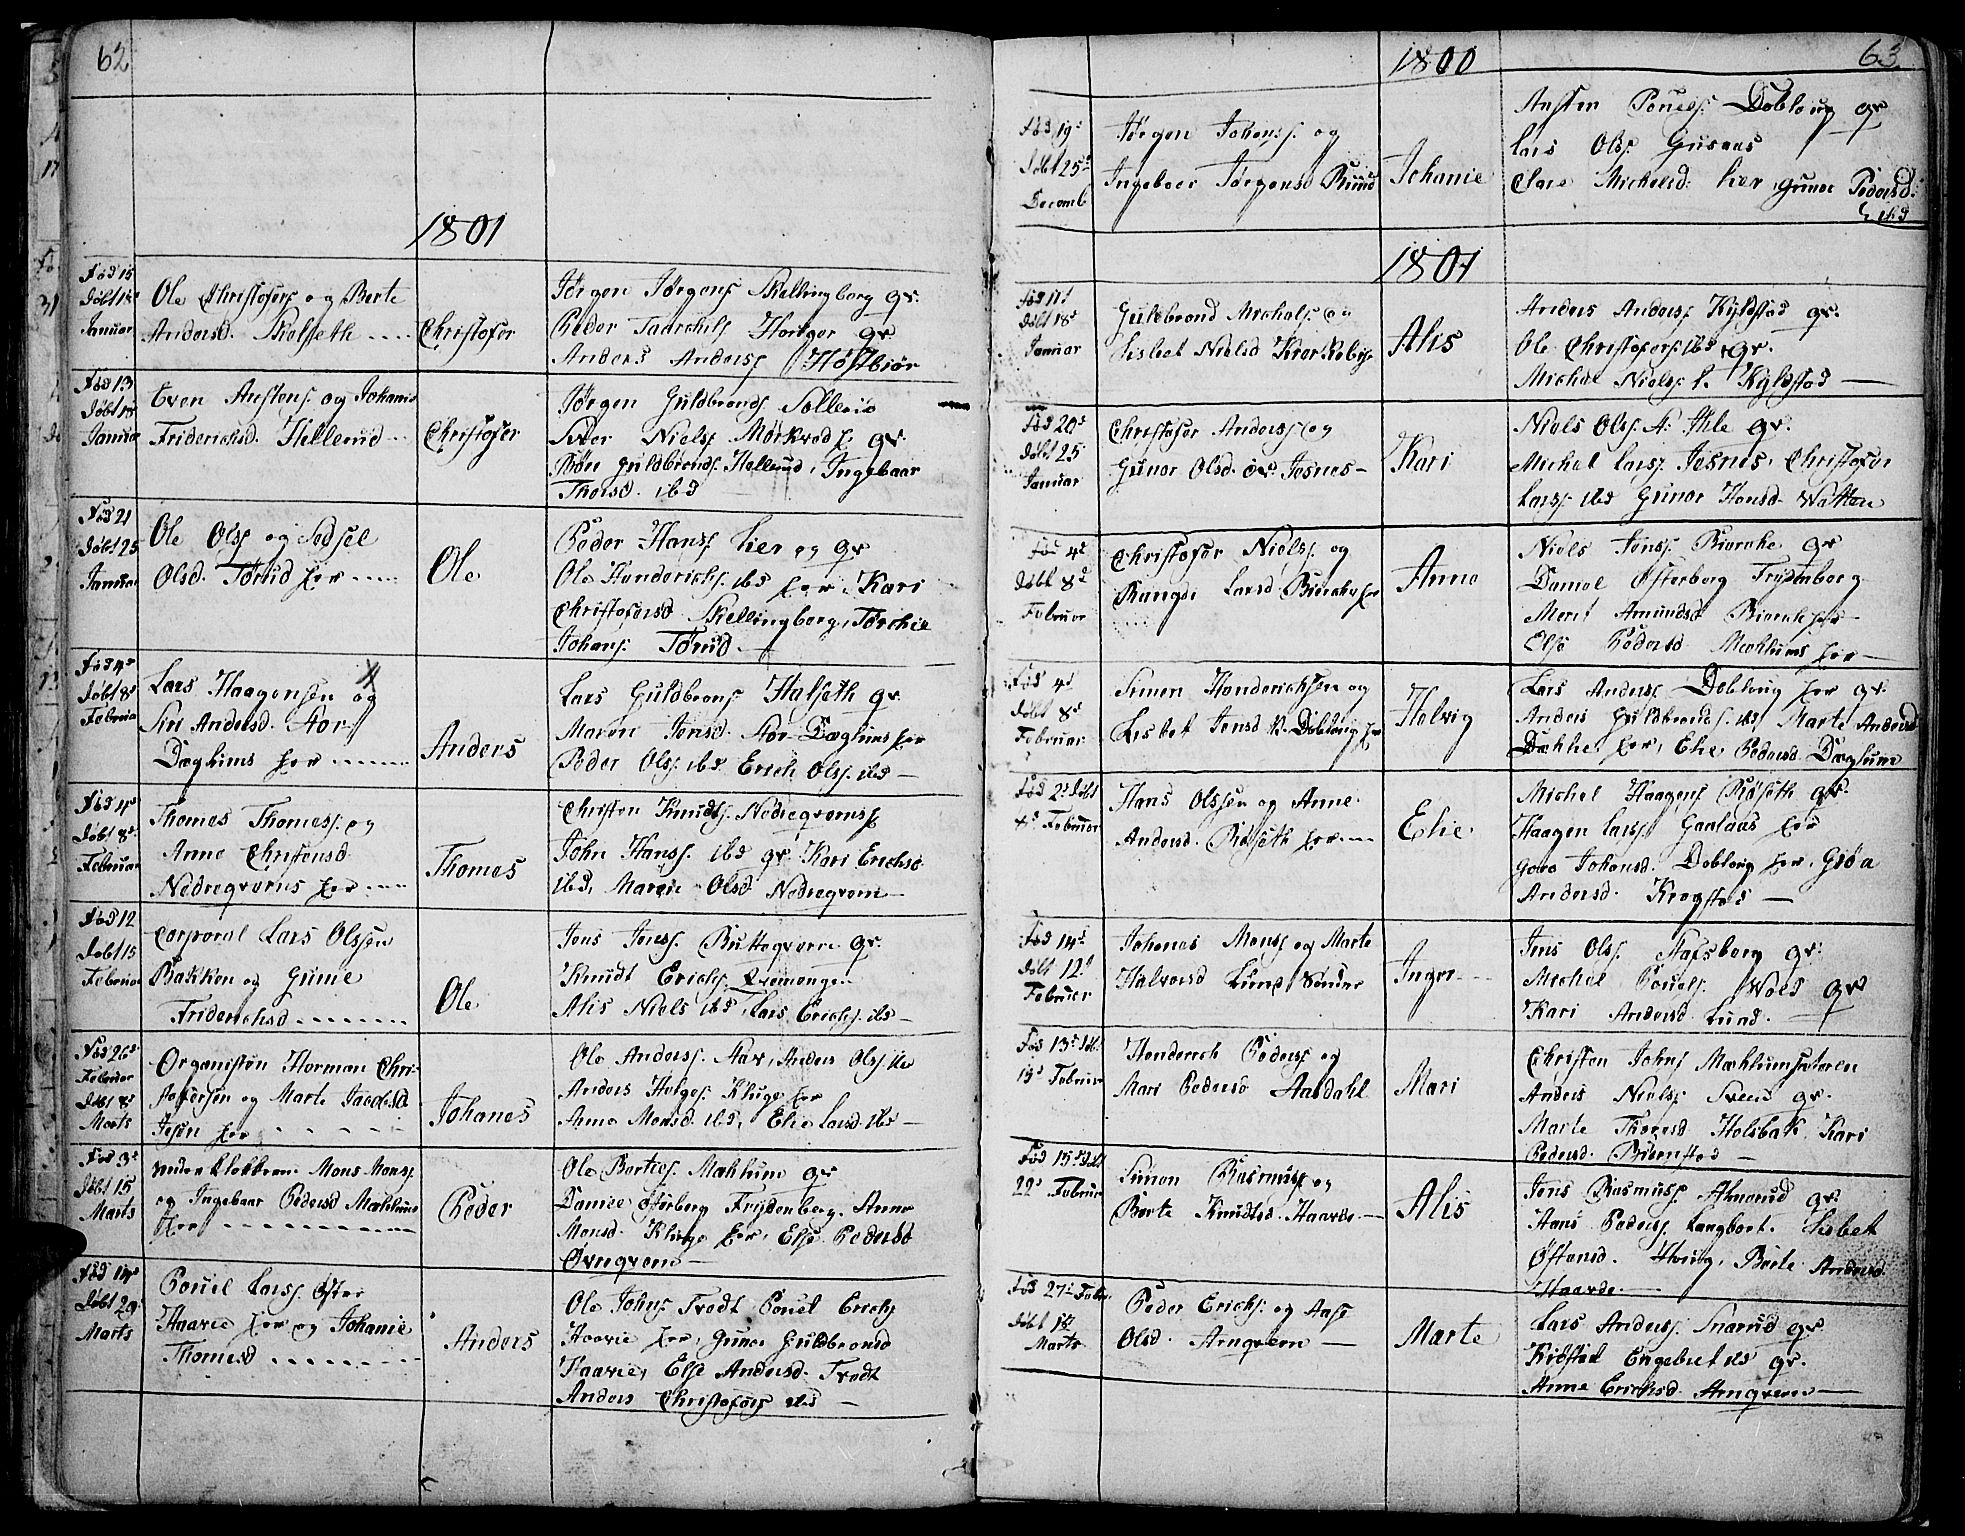 62
1801
Fød 15
Døbt 18
Januar
Ole Christofers og Berte
Andersd. Skolseth
Christofer
Jørgen Jørgens Skellingborg gr.
Peder Taarchils Horger gr
Anders Anders Høstbiør
Fød 13
Døbt 18
Januar
Even Anstens og Johanne
Friderichsd. Hellerud
Christofer
Jørgen Guldbrands Sollerud
Siver Niels Mørkved gr.
Guldbrands Hellerud, Ingebaar
Thorsd. ibd
Fød 21
Døbt 25
Januar
Ole Ols og Sidsel
Olsd. Tørud her
Ole
Peder Hans Lier og gr
Ole Henderichs ibd her, Kari
Christofersd Skellingborg, Torchil
Johans Tørud
Fød 4d
Døbt 8d
Februar
Lars Haagensen og
Siri Andersd. Stor
Dæglums her
Anders
Lars Guldbrans Halseth gr
Maren Jensd. Stor Dæglums her
Peder Ols ibd Erich Ols. ibd
Fød 4d
Døbt 8d
Februar
Thomes Thomess. og
Anne Christensd
Nedreqverns her
Thomes
Christen Knudts. Nedreqverns
John Hanss. ibd gr. Kari Erichsd
ibd, Maren Olsd Nedreqvern
Fød 12
Døbt 15
Februar
Corporal Lars Olssen
Bakken og Gunne
Friderichsd
Ole
Jens Jenss. Butteqvern gr.
Knudt Erichs.
Alis Niels ibd, Lars Erichs. ibd
Fød 26d
Februar
Døbt 8d
Marts
Organisten Herman Chri-
stofersen og Marte Jacobsd
her
Johanes
Ole Anderss. Aar, Anders Ols
Anders Helges Kluge her
Anne Monsd. ibd, Elie Larsd. ibd
Fød 3d
Døbt 15
Marts
Mons Monss
og Ingebaar Pedersd Mæhlum
her
Peder
Ole Berthes. Mæhlum gr
Daniel Østerberg Frydenberg. Anne
Monsd. Kluge her, Else Pedersd
Øvreqvern
Fød 14d
Døbt 29
Marts
Pouel Larss. Øster
Haavie her og Johanne
Thomesd
Anders
Ole Johns Trodt Pouel Erichs
Haavie her, Gunor Guldbrandsd
Haavie, Else Andersd. Trodt
Anders Christofers ibd
1800
63
Fød 19d
Døbt 25d
Decemb
Jørgen Johans. og
Ingebaar Jørgensd Ruud
Johanie
Ansten Pouels. Dobloug gr
Lars Ols.
Michelsd. Lier, Gunor Pedersd.
ibd
1801
Fød 11d
Døbt 18d
Januar
Guldbrand Michels og
Lisbet Nielsd
Alis
Anders Anders Kyldstad gr.
Ole Christofers. ibd gr.
Michel Niels Kyldstad
Fød 20d
Døbt 25
Januar
Christofer Anderss og
Gunor Olsd. Jesnes
Kari
Niels Ols. Ihle gr.
Michel Larss Jesnes, Christofer
Larss ibd Gunor Hansd. Watten
Fød 4d
Døbt 8d
Februar
Christofer Nielss og
Rangdi Larsd Biercke her
Anne
Niels Jenss Biercke gr
Daniel Østerberg Frydenberg
Merit Amundsd Biercke her
Else Pedersd Mæhlums her
Fød 4d
Døbt 8d
Februar
Simen Henderichsen og
Lisbet Jensd Dobloug her
Helvig
Lars Anders Dobloug her gr.
Anders Guldbrands ibd Marte Andersd
her, Elie Pedersd Dæglum
Fød 2d Døbt
8d Februar
Hans Olssen og Anne
Andersd. Røseth her
Elie
Michel Haagens Røseth gr.
Haagen Larss Gaalaas her
Goro Johansd. Dobloug her, Giøa
Andersd. Krogstad
Fød 14d
Døbt 12d
Februar
Johanes Monss og Marte
Halvorsd Lund Sønder
Inger
Jens Olss. Stafsborg gr.
Michel Pouels. Wold gr
Kari Andersd Lund.
Fød 13d
15d Februar
Henderich Pederss og
Mari Pedersd Aasdahl
Mari
Christen Johns Mæhlumsæteren
Anders Niels gr.
Marte Thoresd Holsbak Kari
Pedersd.
Fød 15d Døbt
22d Februar
Simon Rasmuss og
Berte Knudtsd. Haavde
Alis
Jens Rasmuss Almerud gr.
Hans Pederss. Lisbet
Østensd. Berte Andersd
Haavde
Fød 27d Febr.
Døbt
Marts
Peder Erichs. og Aase
Olsd. Arnqvern
Marte
Lars Anderss. Snarud gr
Engebret ibd gr.
Anne Erichsd. Arnqvern